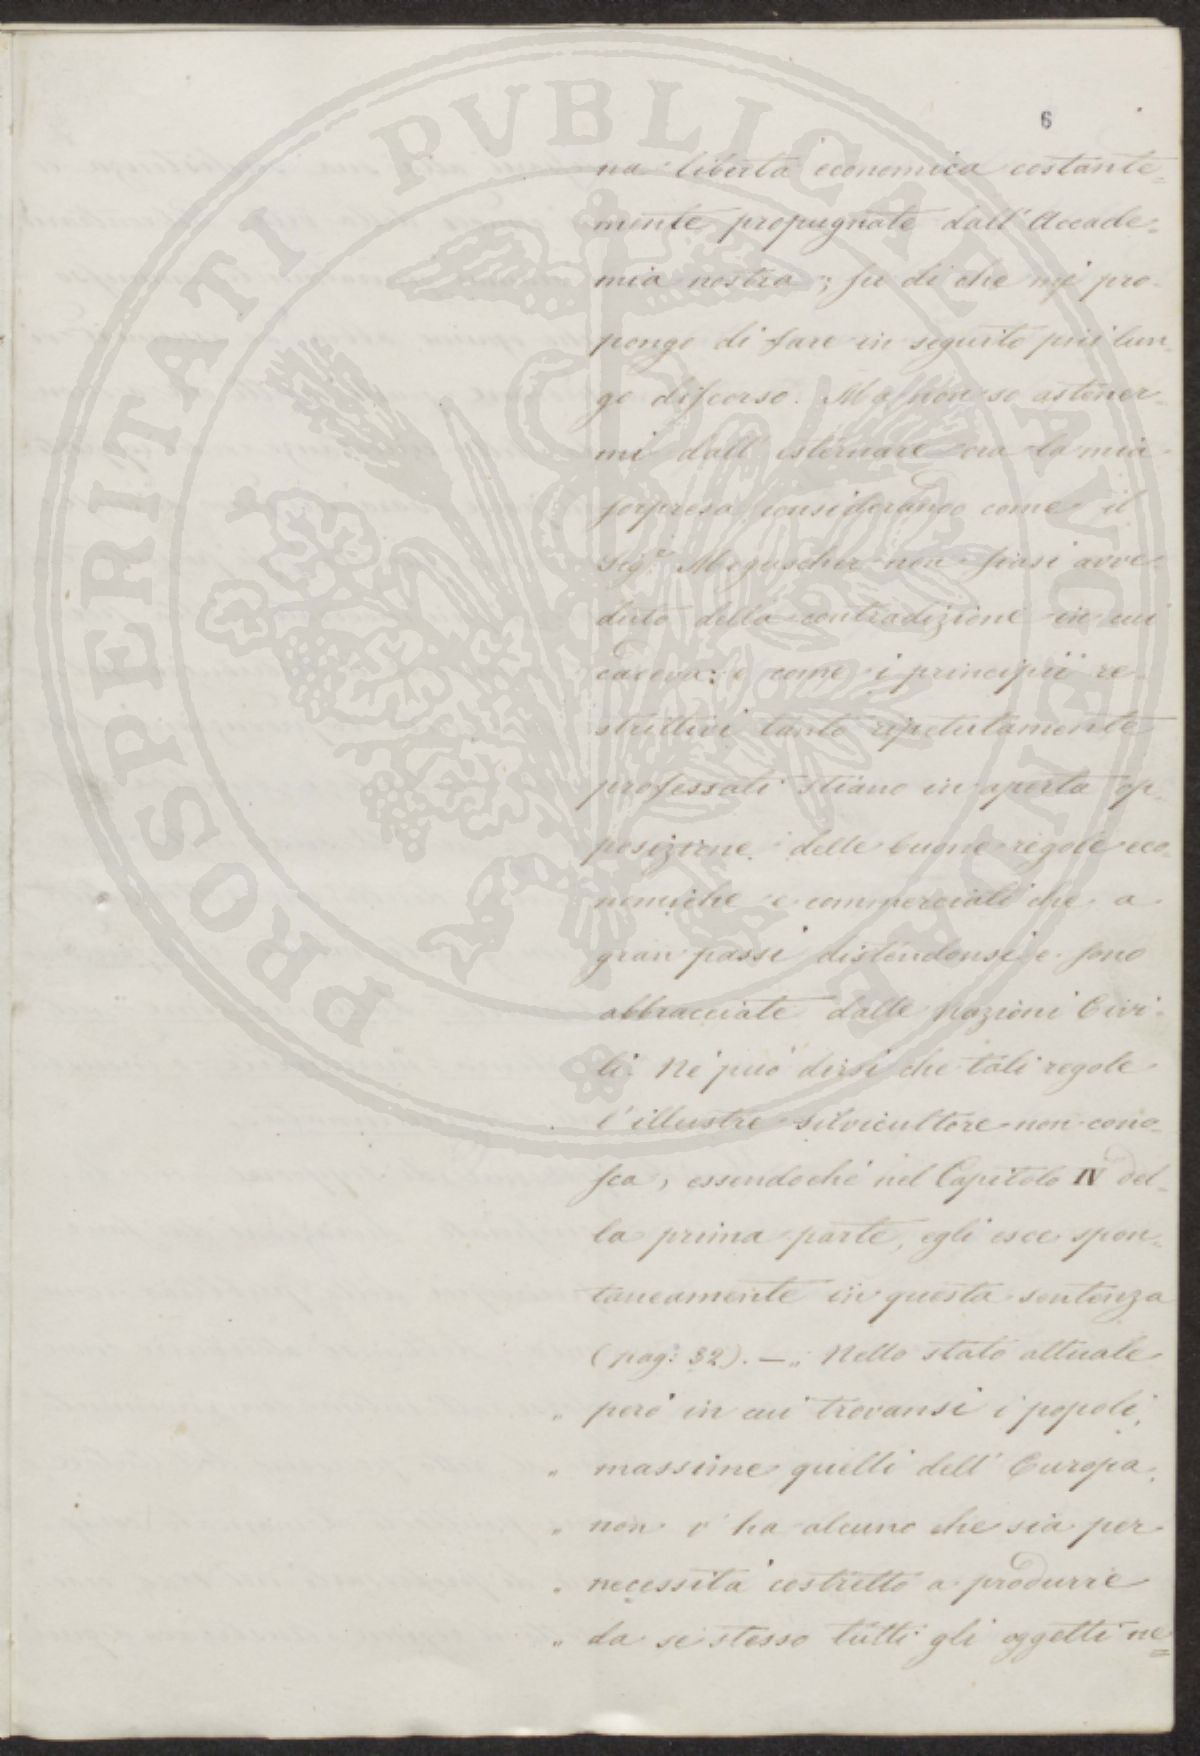 PROSPERITATI PVBLICAE AVGENDAE
6
na libertà economica costante=
mente propugnate dall'Accade=
mia nostra; su di che mi pro-
pongo di fare in seguito più lun-
go discorso. Ma non so astener-
mi dall'esternare ora la mia
sorpresa considerando come il
Sigr. Meguscher non siasi avve-
duto della contradizione in cui
cadeva: e come i principii re-
strittivi tanto ripetutamente
professati stiano in aperta op-
posizione delle buone regole eco-
nomiche e commerciali che a
gran passi distendonsi e sono
abbracciate dalle nazioni Civi-
li. Nè può dirsi che tali regole
l'illustre silvicultore non cono-
sca, essendochè nel Capitolo IV del-
la prima parte, egli esce spon-
taneamente in questa sentenza
(pag: 32). — „ Nello stato attuale
„ però in cui trovansi i popoli,
„ massime quelli dell'Europa,
„ non v'ha alcuno che sia per
„ necessità costretto a produrre
„ da se stesso tutti gli oggetti ne=